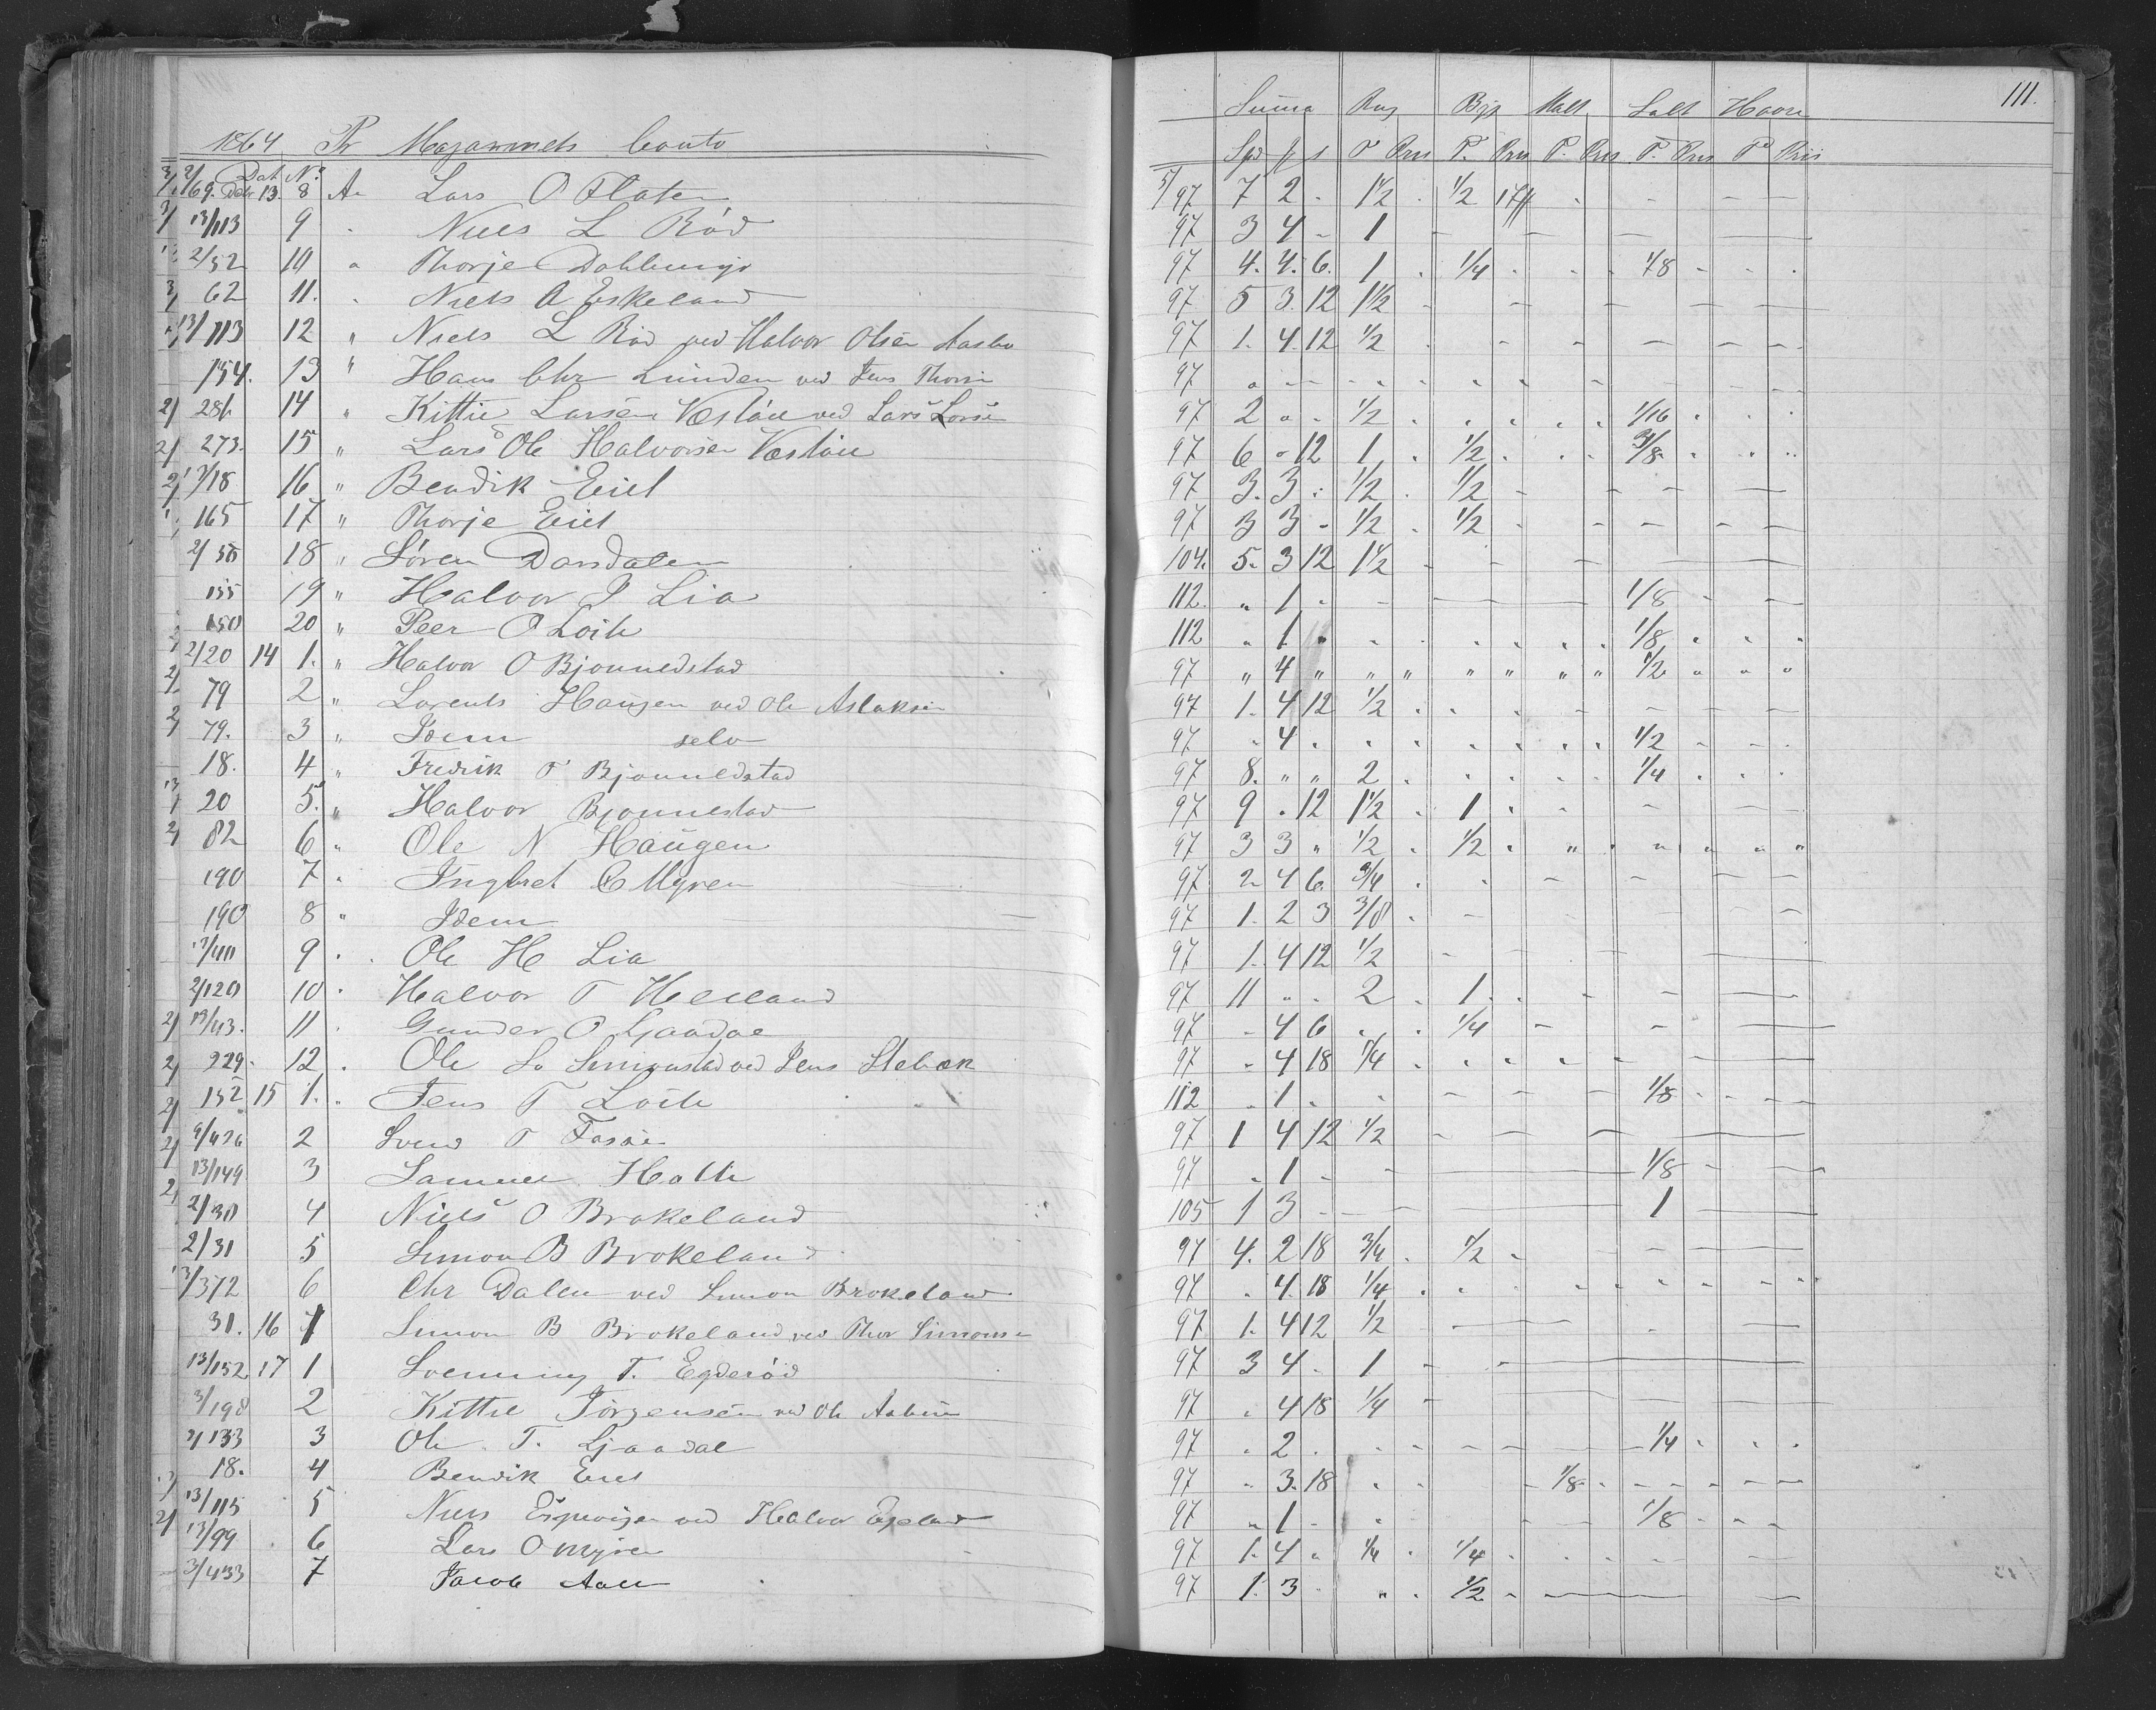 111.
1864 Pr Magasinets Conto Summa Rug Byg Malt Salt Havre
Dat No. Spd T P. P. T.
2/69. Debr 13. 8 An Lars O Flaten 5/97 7 2 - 1 1/2 1/2
13/113 9 Niels L Röd 97 3 4 - 1
2/52 10 Thorje Dahlunge 97 4. 4. 6. 1 1/4 1/8
62 11. Niels A Eskeland 97 5 3. 12 1 1/2
13/113 12 " Niels L Röd ved Halvor Olsen Aasbo 97 1. 4. 12 1/2
154. 13 " Hans Chr Lunden ved Jens Thorsn 97
286 14 " Kittil Larsen Vestöen ved Lars Larsen 97 2 1/2 1/16
273. 15 " Lars Ole Halvorsen Vestöen 97 6 - 12 1 1/2 3/8
13/18 16 " Bendik Eiet 97 3. 3 1/2 1/2
165 17 " Thorje Eiet 97 3 3 - 1/2 1/2
2/58 18 " Sören Darsdalen 104. 5. 3 12 1 1/2
155 19 " Halvor P Lia 112. " 1 - 1/8
150 20 " Peer O Loite 112 " 1 " 1/8
2/20 14 1. " Halvor O Bjonnedstad 97 " 4 " " " " " " " 1/2
79 2 " Lorents Haugen ved Ole Aslaksen 97 1. 4 12 1/2
79. 3 " Idem selv 97 - 4 1/2
18. 4 " Fredrik T Bjonnedstad 97 8. " " 2 1/4
20 5. " Halvor Bjonnestad 97 9 . 12 1 1/2 1
82 6 " Ole N Haugen 97 3 3 " 1/2 1/2
190 7 " Ingbret C Myren 97 2 4 6. 3/4
190 8 " Idem 97 1. 2 3 3/8
13/40 9 . Ole H Lia 97 1. 4 12 1/2
2/120 10 . Halvor T Heiland 97 11 " . 2 1
13/43. 11 . Gunder O Ljaadal 97 - 4 6 1/4
229. 12 . Ole So Simonstad ved Jens Stebæk 97 - 4 18 1/4
152 15 1. " Jens T Loite 112 . 1 . 1/8
9/426 2 Svend T Fosse 97 1 4 12 1/2
13/149 3 Samuel Holte 97 . 1 - 1/8
2/30 4 Niels O Brokeland 105 1 3 - 1
2/31 5 Simon B Brokeland 97 4. 2 18 3/4 1/2
13/372 6 Chr Dalen ved Simon Brokeland 97 . 4. 18 1/4
31. 16 1 Simon B Brokeland ved Thor Simonsen 97 1. 4 12 1/2
13/152 17 1 Svenning T. Egderöd 97 3 4 - 1
3/198 2 Kittil Jörgensen ved Ole 97 . 4 18 1/4
2/133 3 Ole T. Ljaadal 97 . 2 . 1/4
18. 4 Bendik Eiet 97 - 3. 18 1/8
13/115 5 Niels Espeviger ved Halvor Espeland 97 " 1 - 1/8
13/99 6 Lars O Myren 97 1. 4 " 1/4 1/4
3/433 7 Jacob Aall 97 1. 3 " 1/2